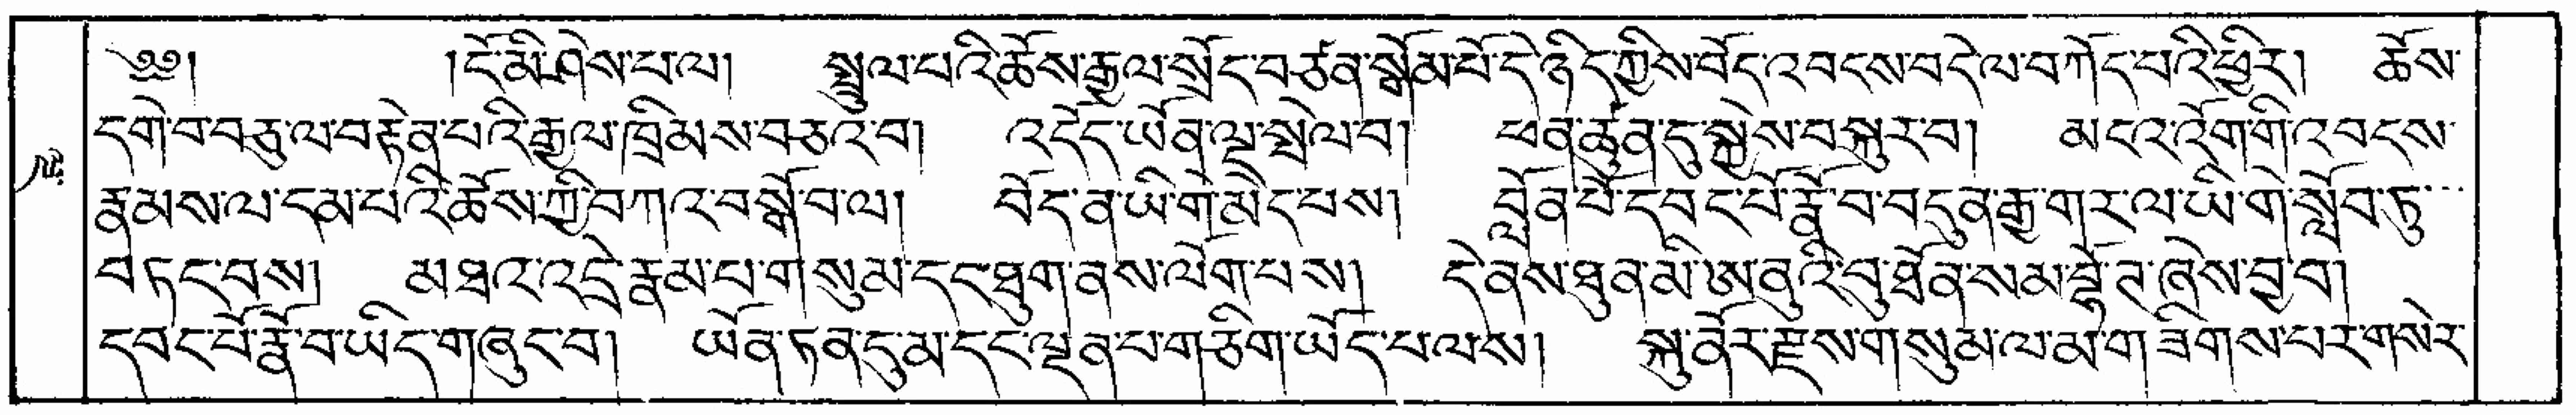 ༄༅། །ངོ་མི་ཤེས་པ་ལ། སྤྲུལ་པའི་ཆོས་རྒྱལ་སྲོང་བཙན་སྒོམ་པོ་དེ་ཉིད་ཀྱིས་བོད་འབངས་བདེ་ལ་བཀོད་པའི་ཕྱིར། ཆོས་
དགེ་བ་བཅུ་ལ་བརྟེན་པའི་རྒྱལ་ཁྲིམས་བཅའ་བ། འདོད་ཡོན་ལྔ་སྤེལ་བ། ཕན་ཚུན་དུ་སྐྱེས་བསྐུར་བ། མངའ་འོག་གི་འབངས་
རྣམས་ལ་དམ་པའི་ཆོས་ཀྱི་བཀའ་བསྒོ་བ་ལ། བོད་ན་ཡི་གེ་མེད་པས། བློན་པོ་དབང་པོ་རྣོ་བ་བདུན་རྒྱ་གར་ལ་ཡི་གེ་སློབ་ཏུ་
བཏང་བས། མཐའ་འདྲེ་རྣམ་པ་གསུམ་དང་ཐུག་ནས་ལོག་པས། དེ་ནས་ཐུན་མི་ཨ་ནུའི་བུ་ཐོན་སམ་བྷོ་ཊ་ཞེས་བྱ་བ།
དབང་པོ་རྣོ་བ་ཡིད་གཞུང་བ། ཡོན་ཏན་དུ་མ་དང་ལྡན་པ་གཅིག་ཡོད་པ་ལས། སྐུ་ནོར་རྫས་གསུམ་ལ་མ་གཟིགས་པར་གསེར་